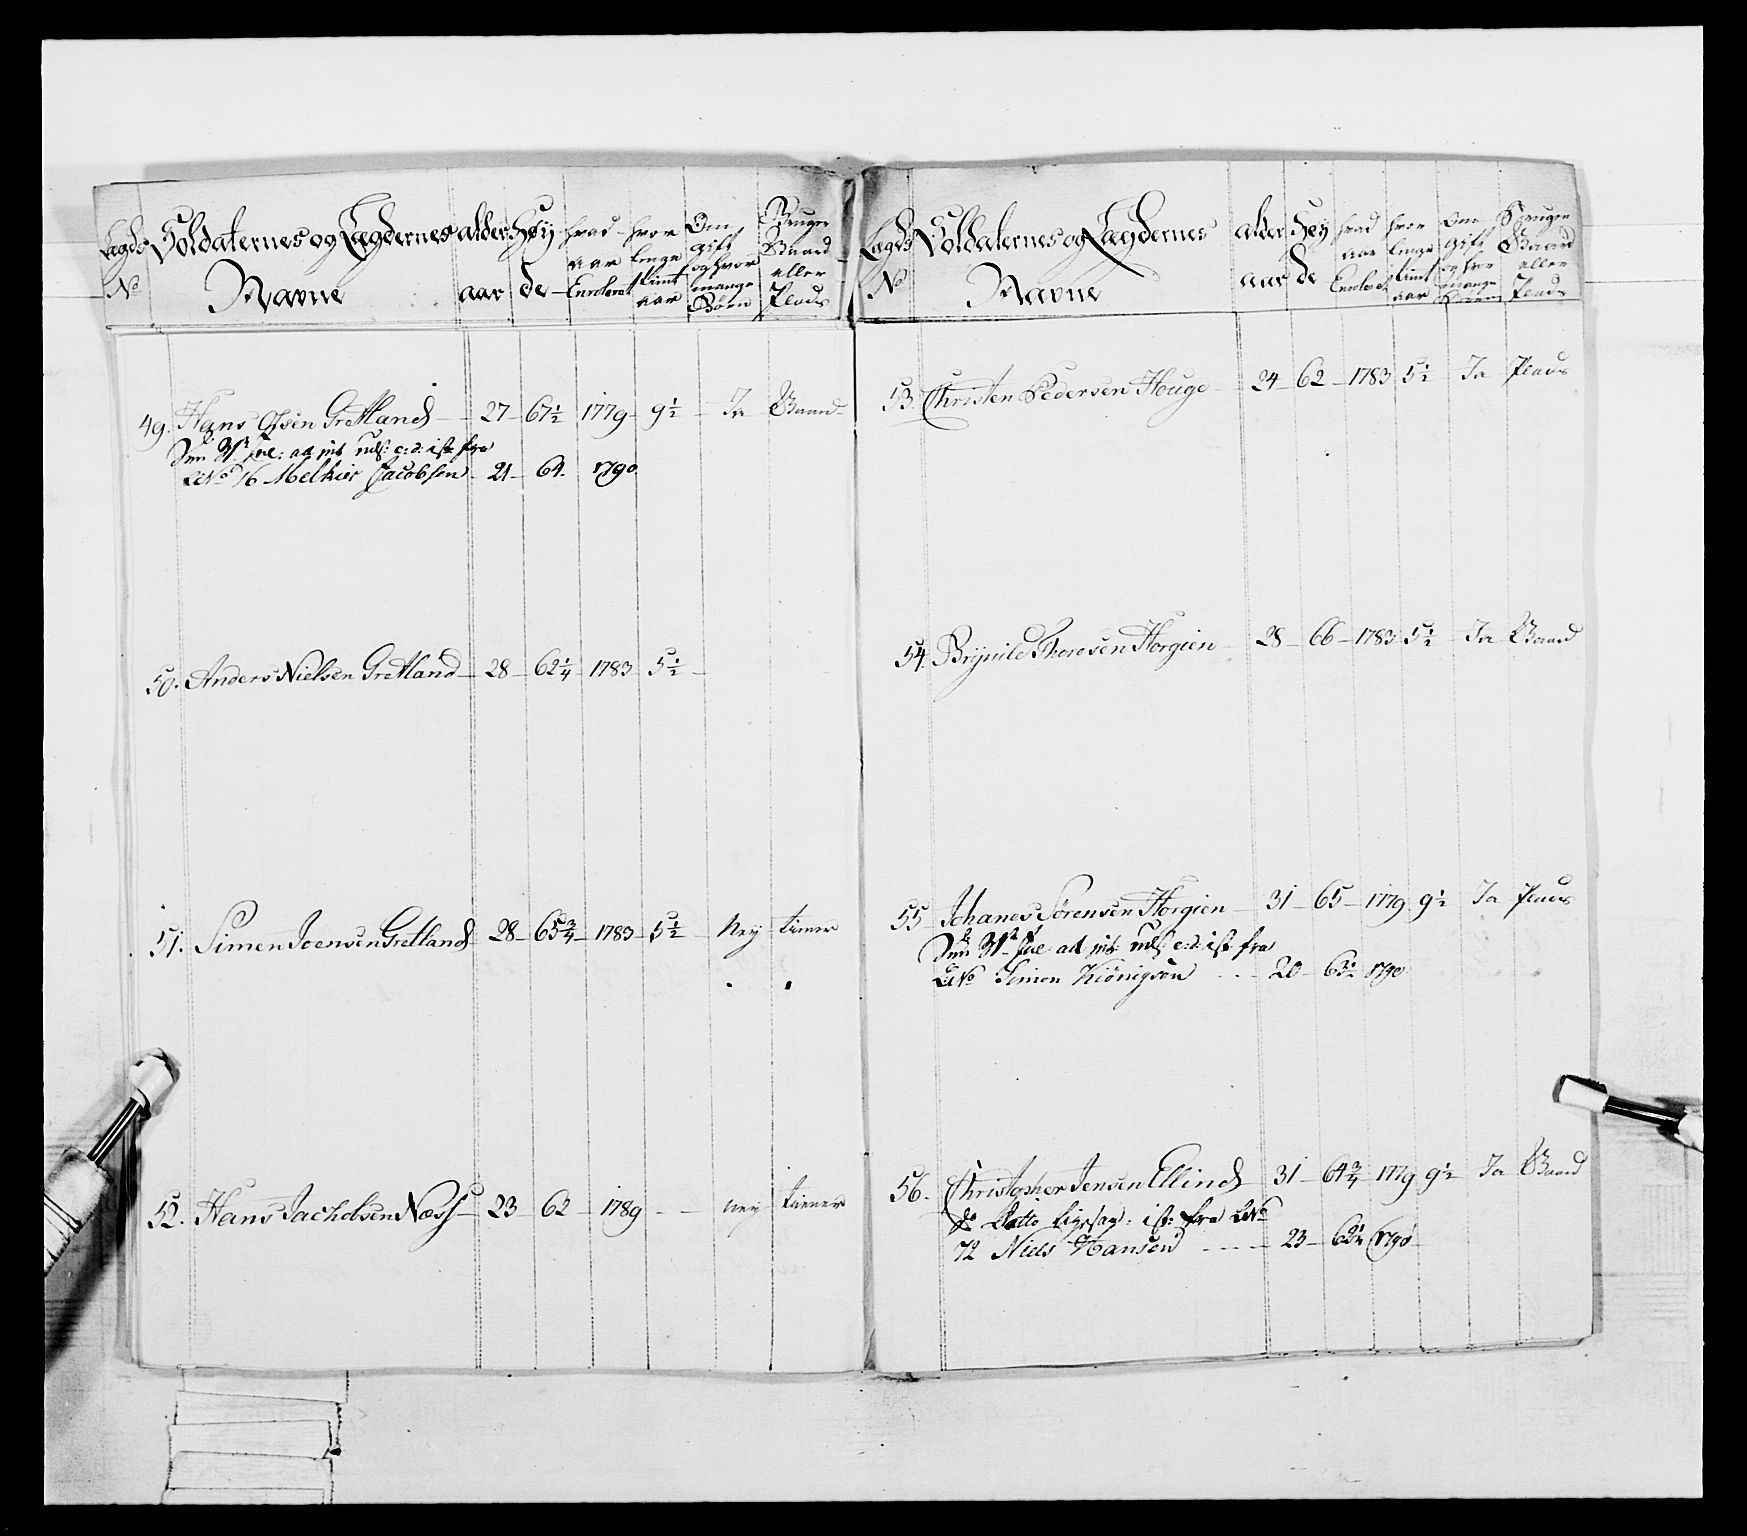 Lægds No
Soldaternes og Lægdernes Navne
alder aar
Høyde
hvad aar Enroleret
hvor lenge tient aar
Om gift og hvor mange Børn
Bruger Gaard eller Plads
49. Hans Olsen Gretland 27 67½ 1779 9½ Ja Gaard
Den 31 Jul: ad int: ist fra
LNo 16 Melkior Jacobsen 21 64 1790
50. Anders Nielsen Gretland 28 62¼ 1783 5½
51. Simen Joensen Gretland 28 65¾ 1783 5½ Ney tiener
52. Hans Jachobsen Næss 23 62 1789 Ney tiener
Lægds No
Soldaternes og Lægdernes Navne
alder aar
Høyde
hvad aar Enrolert
hvor lenge tient aar
Om gift og hvor mange Børen
Bruger Gaard eller Plads
53. Christen Pedersen Houge 24 62 1783 5½ Ja Plads
54. Brynild Thoresen Horgien 28 66 1783 5½ Ja Gaard
55 Johanes Sørensen Horgien 31 65 1779 9½ Ja Plads
Den 31 Jul: ad int: ist fra
LNo Simon Kiønigsøn 20 63½ 1790
56. Christopher Jensen Ellind 31 64¾ 1779 9½ Ja Gaard
Datto ligesaa: ist: fra LNo
72 Niels Hansen 23 62½ 1790